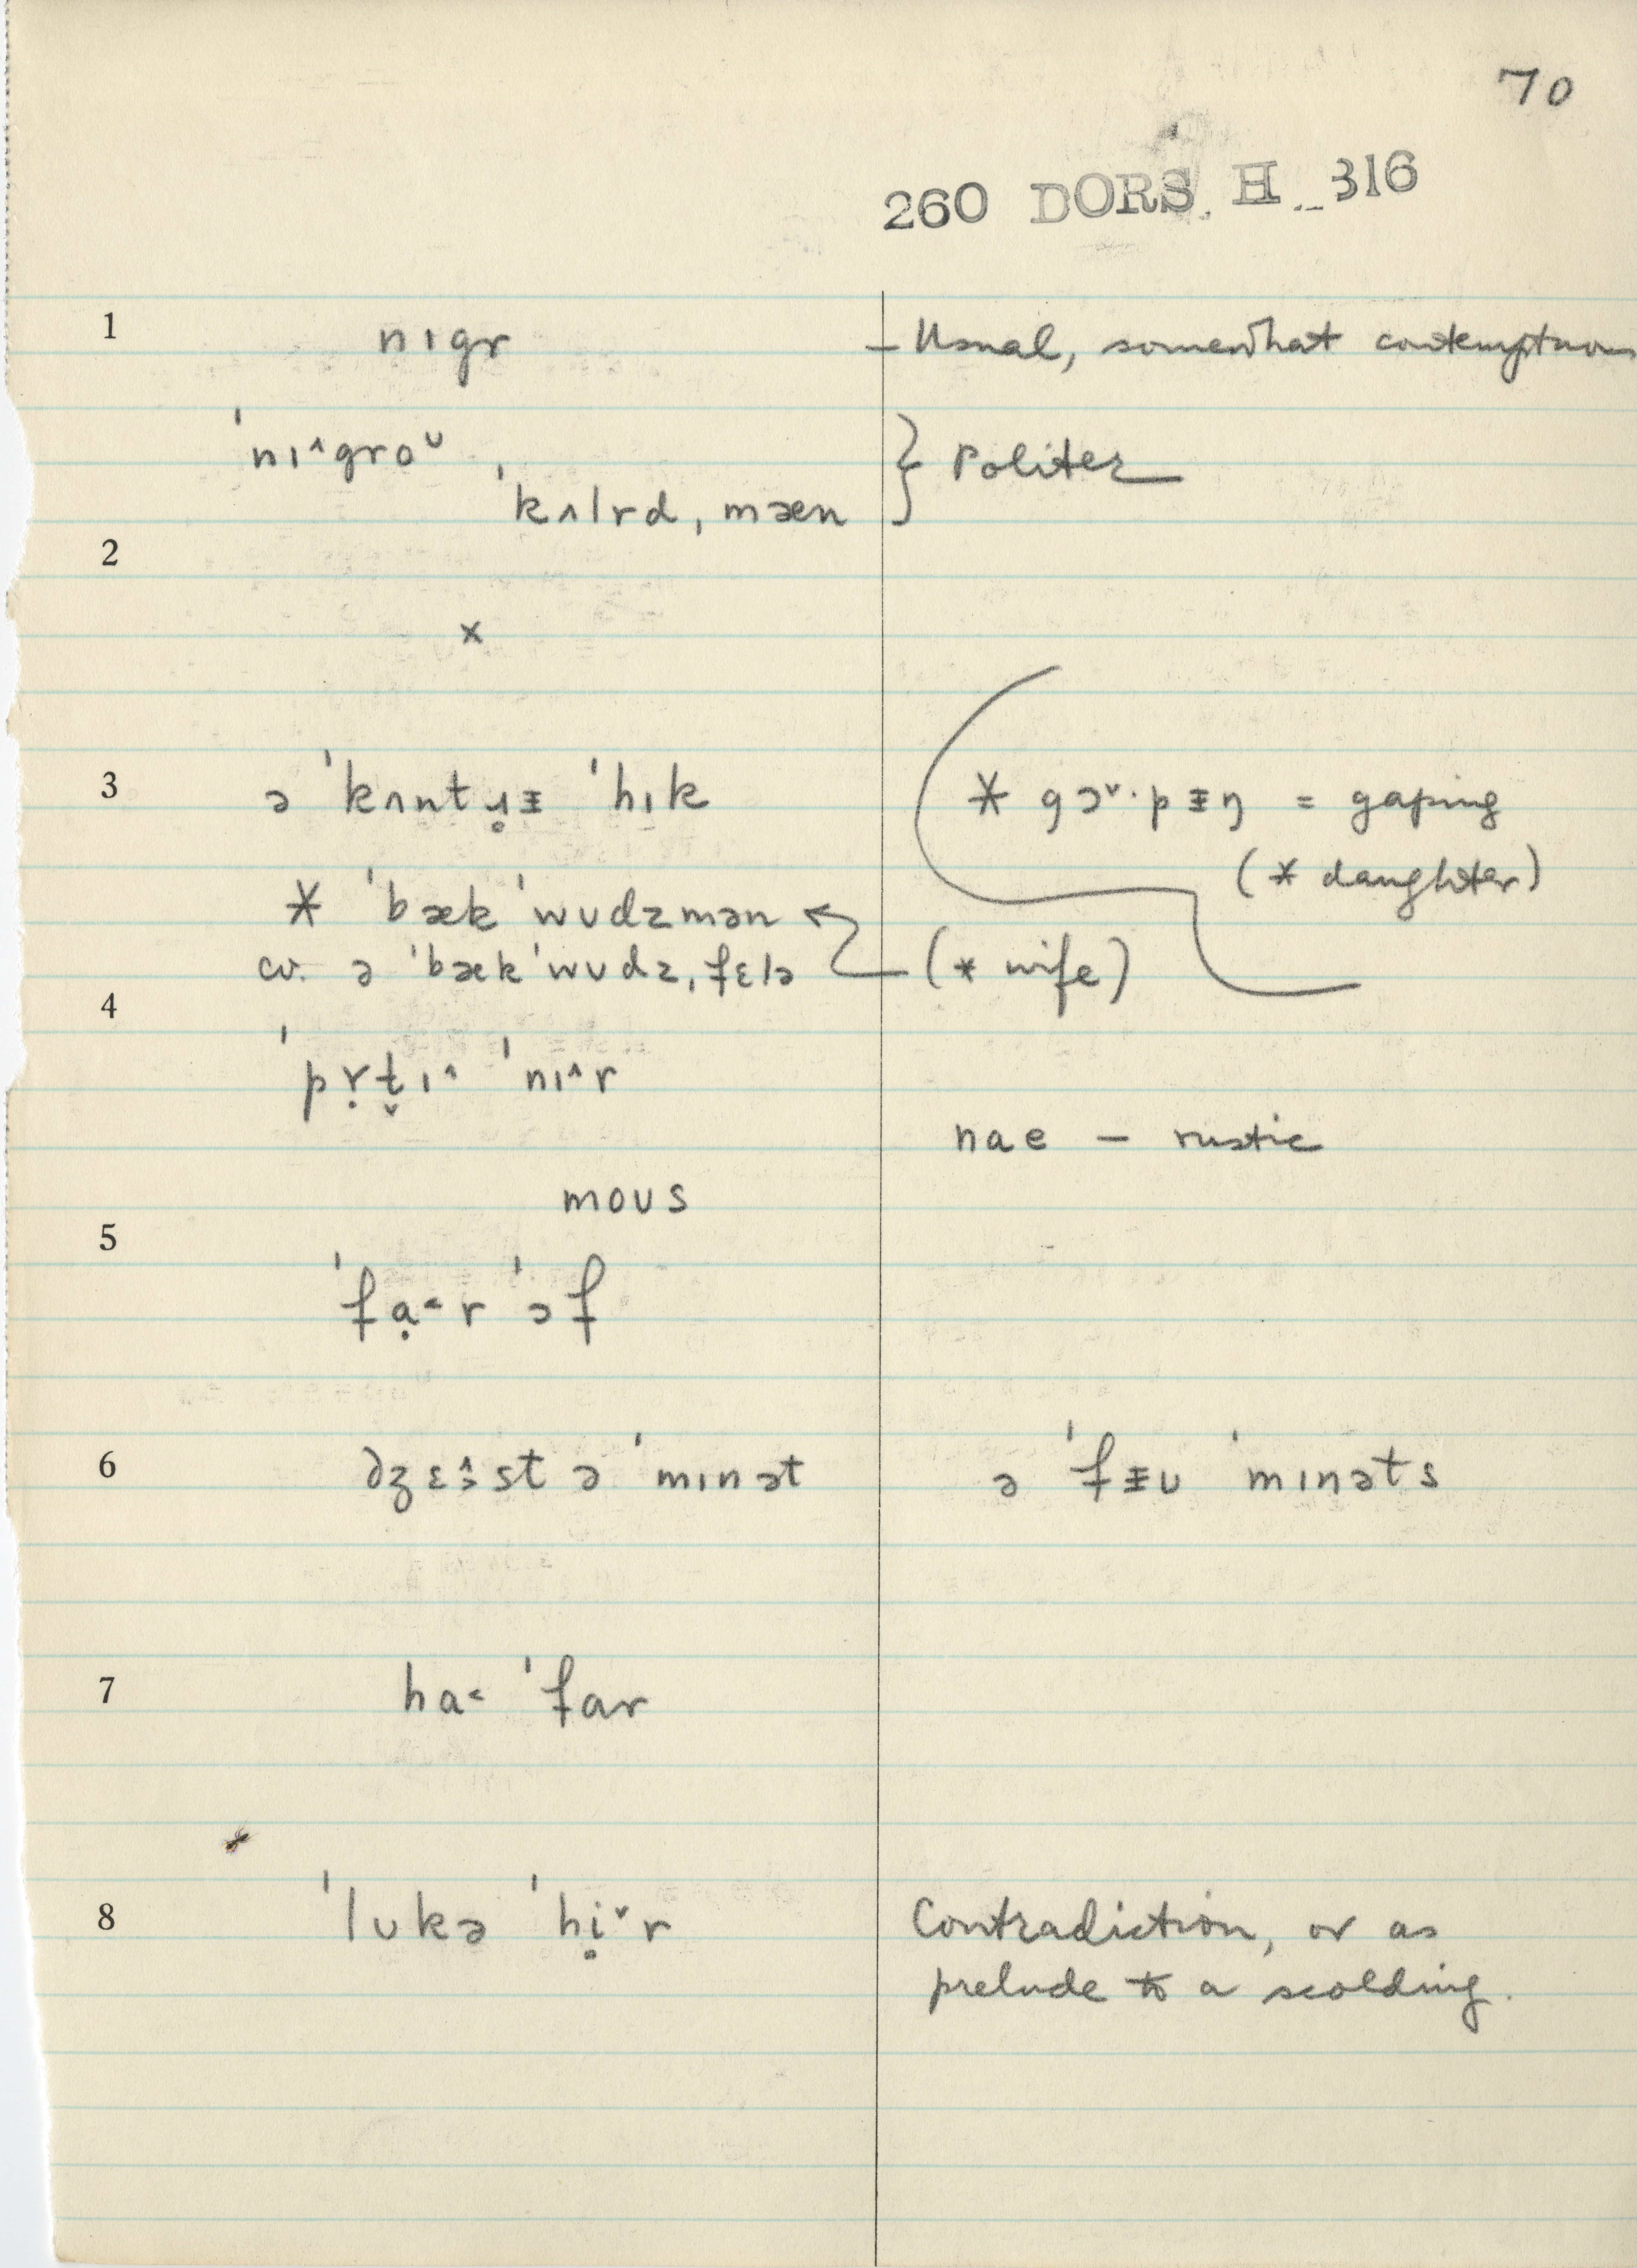 70
260 DORS. H 316
1 nɪgr – Usual, somewhat contemptuous
ˈnɪ^groᵕ, } Politer
ˈkʌlrd ˌmæn
2
×
3 ə ˈkʌntɹ̥ᵻ ˈhɪk * gɔᵛ·pᵻŋ = gaping
(* daughter)
* ˈbækˈwʊdzmən
cv. ə ˈbækˈwʊdzˌfɛlə (* wife)
4
ˈpṛt̬ɪ^ ˈnɪ^r
nae – rustic
moʊs
5
ˈfạ˂r ˈɔf
6 dʒɛə̂st ə ˈmɪnət ə ˈfᵻʊ ˈmɪnəts
7 ha˂ ˈfar
8 ˈlʊkə ˈhi̥ᵛr Contradiction, or as
prelude to a scolding.